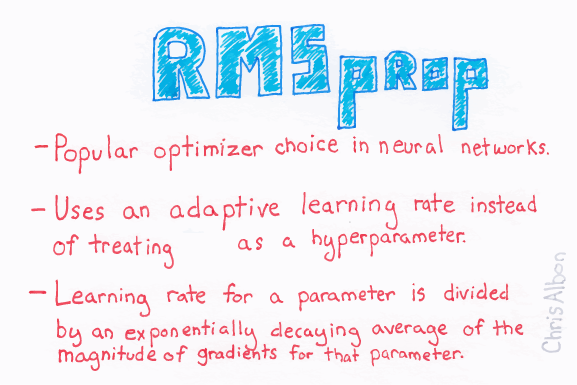 RMSprop
- Popular optimizer choice in neural networks.
- Uses an adaptive learning rate instead
of treating as a hyperparameter.
- Learning rate for a parameter is divided
by an exponentially decaying average of the
magnitude of gradients for that parameter.
Chris Albon